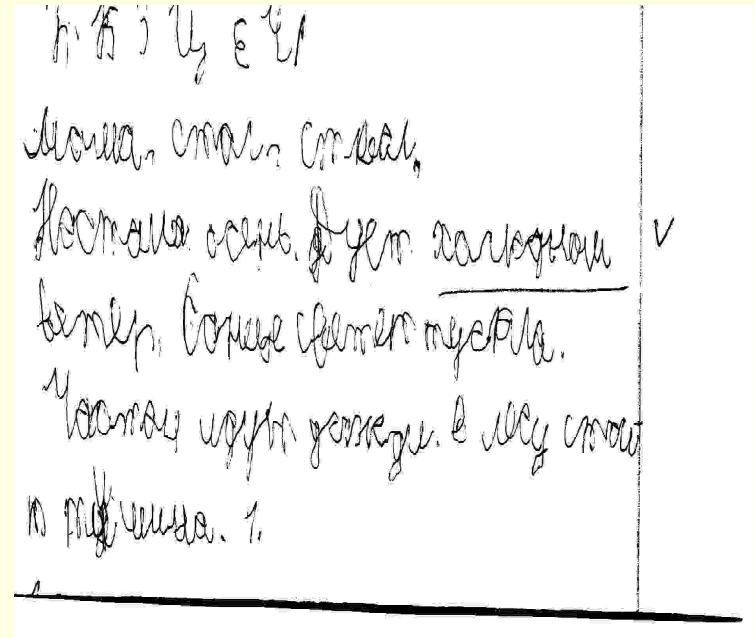 К К З Ц Е Ч
мама, стол, ствал,
Настала осень. Дует халодном
ветер. Сонце светет тускла.
Частои идут дожжди. в лесу стои
т тишина. 1.